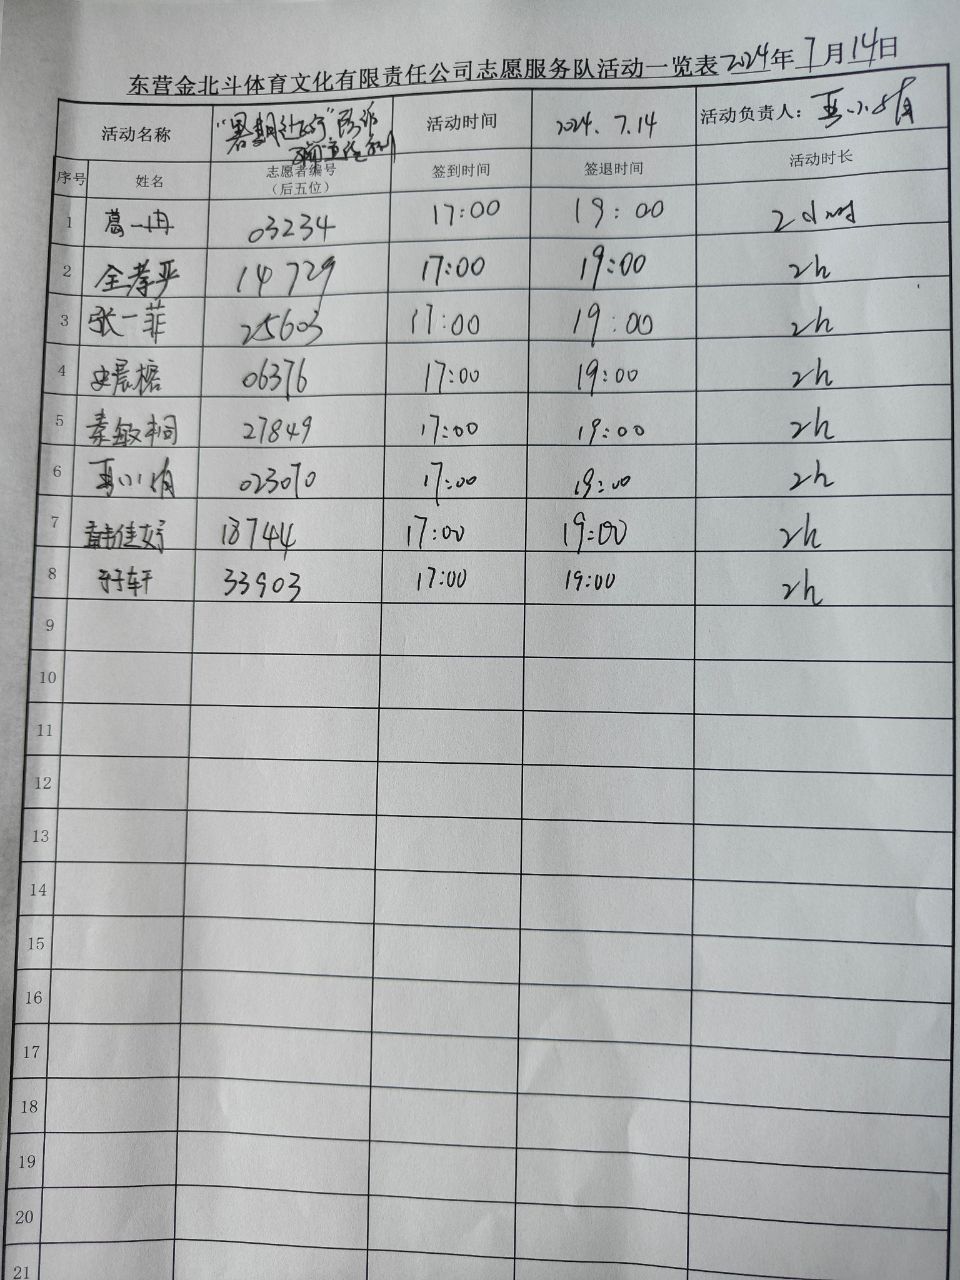 东营金北斗体育文化有限责任公司志愿服务队活动一览表2024年7月14日
活动名称 活动时间 2024.7.14 活动负责人：
序号 姓名 志愿者编号（后五位） 签到时间 签退时间 活动时长
1 葛一冉 03234 17:00 19:00 2小时
2 全孝严 14729 17:00 19:00 2h
3 张一菲 25603 17:00 19:00 2h
4 史宸榕 06376 17:00 19:00 2h
5 秦敏桐 27849 17:00 19:00 2h
6 023070 17:00 19:00 2h
7 18744 17:00 19:00 2h
8 33903 17:00 19:00 2h
9
10
11
12
13
14
15
16
17
18
19
20
21